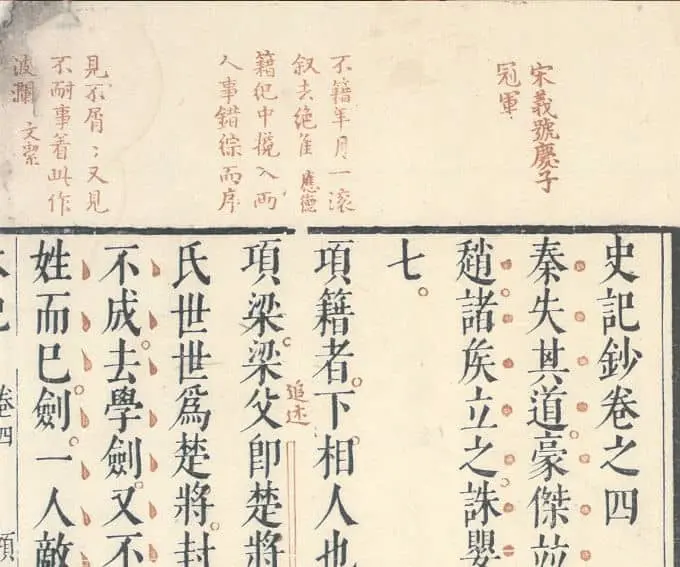 宋義號慶子
冠軍
不籍年月一滚
叙去絶隹 應德
籍纪中攙入两
人事錯綜而序
見不屑〻又見
不耐事著此作
波瀾 文潔
史記鈔卷之四
秦失其道豪傑並
趙諸矦立之誅嬰
七。
項籍者。下相人也
追述
項梁。梁父卽楚將
氏世世爲楚將。封
不成。去學劍。又不
姓而已。劍。一人敵
卷四